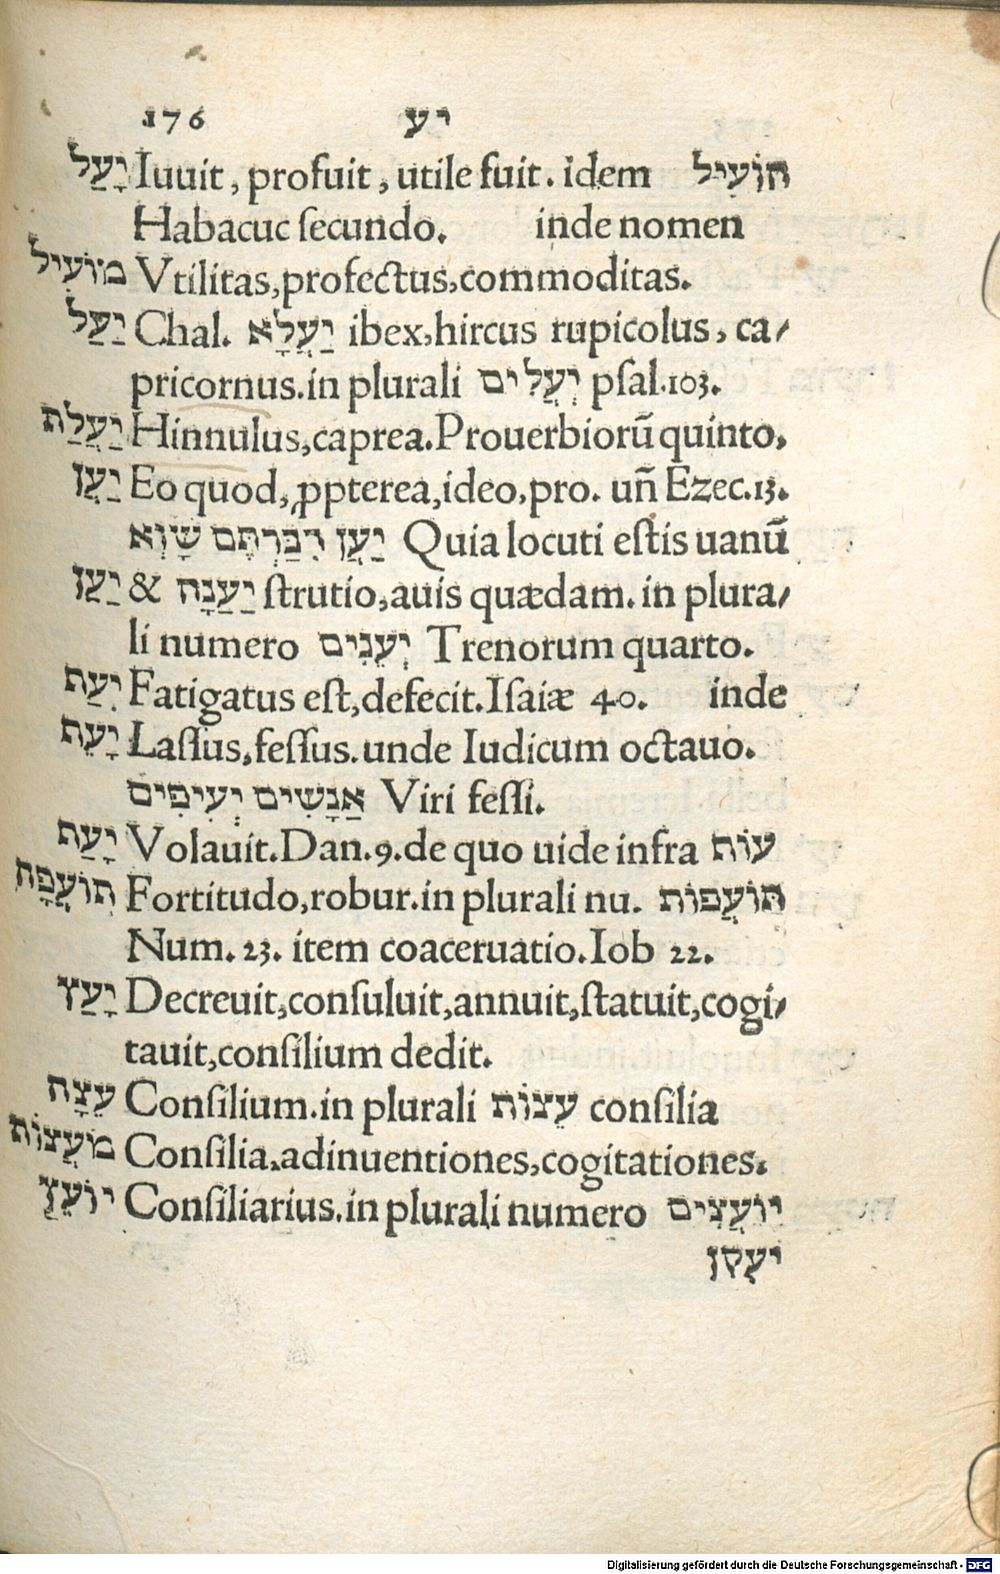 176 יע
יָעַל Iuuit, profuit, utile fuit. idem הוֹעִיל
Habacuc ſecundo. inde nomen
מוֹעִיל Vtilitas, profectus, commoditas.
יַעַל Chal. יַעֲלָא ibex, hircus rupicolus, ca/
pricornus. in plurali יְעֲלִים pſal. 103.
יַעֲלַת Hinnulus, caprea. Prouerbiorũ quinto.
יַעַן Eo quod, ꝓpterea, ideo, pro. uñ Ezec. 13.
יַעַן דִּבַּרְתֶּם שָׁוְא Quia locuti eſtis uanũ
יַעַן & יַעֲנָה ſtrutio, auis quædam. in plura/
li numero יְעֵנִים Trenorum quarto.
יָעַף Fatigatus eſt, defecit. Iſaiæ 40. inde
יָעֵף Laſſus, feſſus. unde Iudicum octauo.
אֲנָשִׁים יְעִיפִים Viri feſſi.
יָעַף Volauit. Dan. 9. de quo uide infra עוּף
תּוֹעָפָה Fortitudo, robur. in plurali nu. תּוֹעֲפוֹת
Num. 23. item coaceruatio. Iob 22.
יָעַץ Decreuit, conſuluit, annuit, ſtatuit, cogi/
tauit, conſilium dedit.
עֵצָה Conſilium. in plurali עֵצוֹת conſilia
מֹעֲצוֹת Conſilia. adinuentiones, cogitationes.
יוֹעֵץ Conſiliarius. in plurali numero יוֹעֲצִים
יעקן
Digitalisierung gefördert durch die Deutsche Forschungsgemeinschaft - DFG